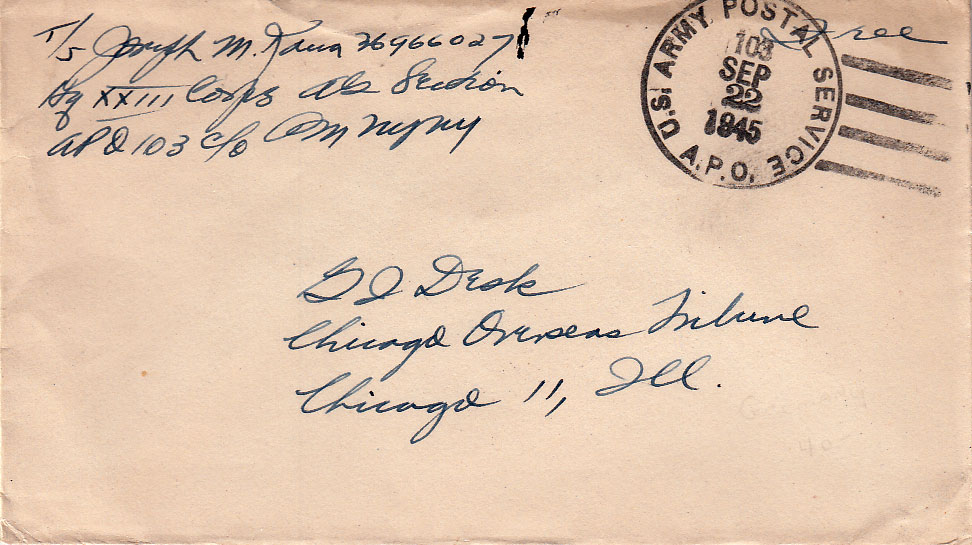 T/5 Joseph M. Kania 36966027
Hq XXIII Corps AG Section
APO 103 c/o PM NYNY
Free
U.S. ARMY POSTAL SERVICE
103
SEP
22
1945
A.P.O.
G I Desk
Chicago Overseas Tribune
Chicago 11, Ill.